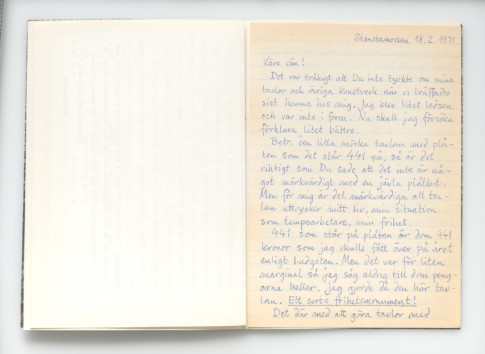 Stenstamossen 18.2.1971
Käre vän!
Det var tråkigt att Du inte tyckte om mina
tavlor och övriga konstverk när vi träffades
sist hemma hos mig. Jag blev litet ledsen
och var inte i form. Nu skall jag försöka
förklara litet bättre.
Betr. den lilla mörka tavlan med plå-
ten som det står 441 på, så är det
riktigt som Du sade att det inte är nå-
got märkvärdigt med en jävla plåtbit.
Men för mig är det märkvärdiga att tav-
lan uttrycker mitt liv, min situation
som tempoarbetare, min frihet.
441 som står på plåten är dom 441
kronor som jag skulle fått över på året
enligt budgeten. Men det var för liten
marginal så jag såg aldrig till dom peng-
arna heller. Jag gjorde då den här tav-
lan. Ett sorts frihetsmonument!
Det där med att göra tavlor med